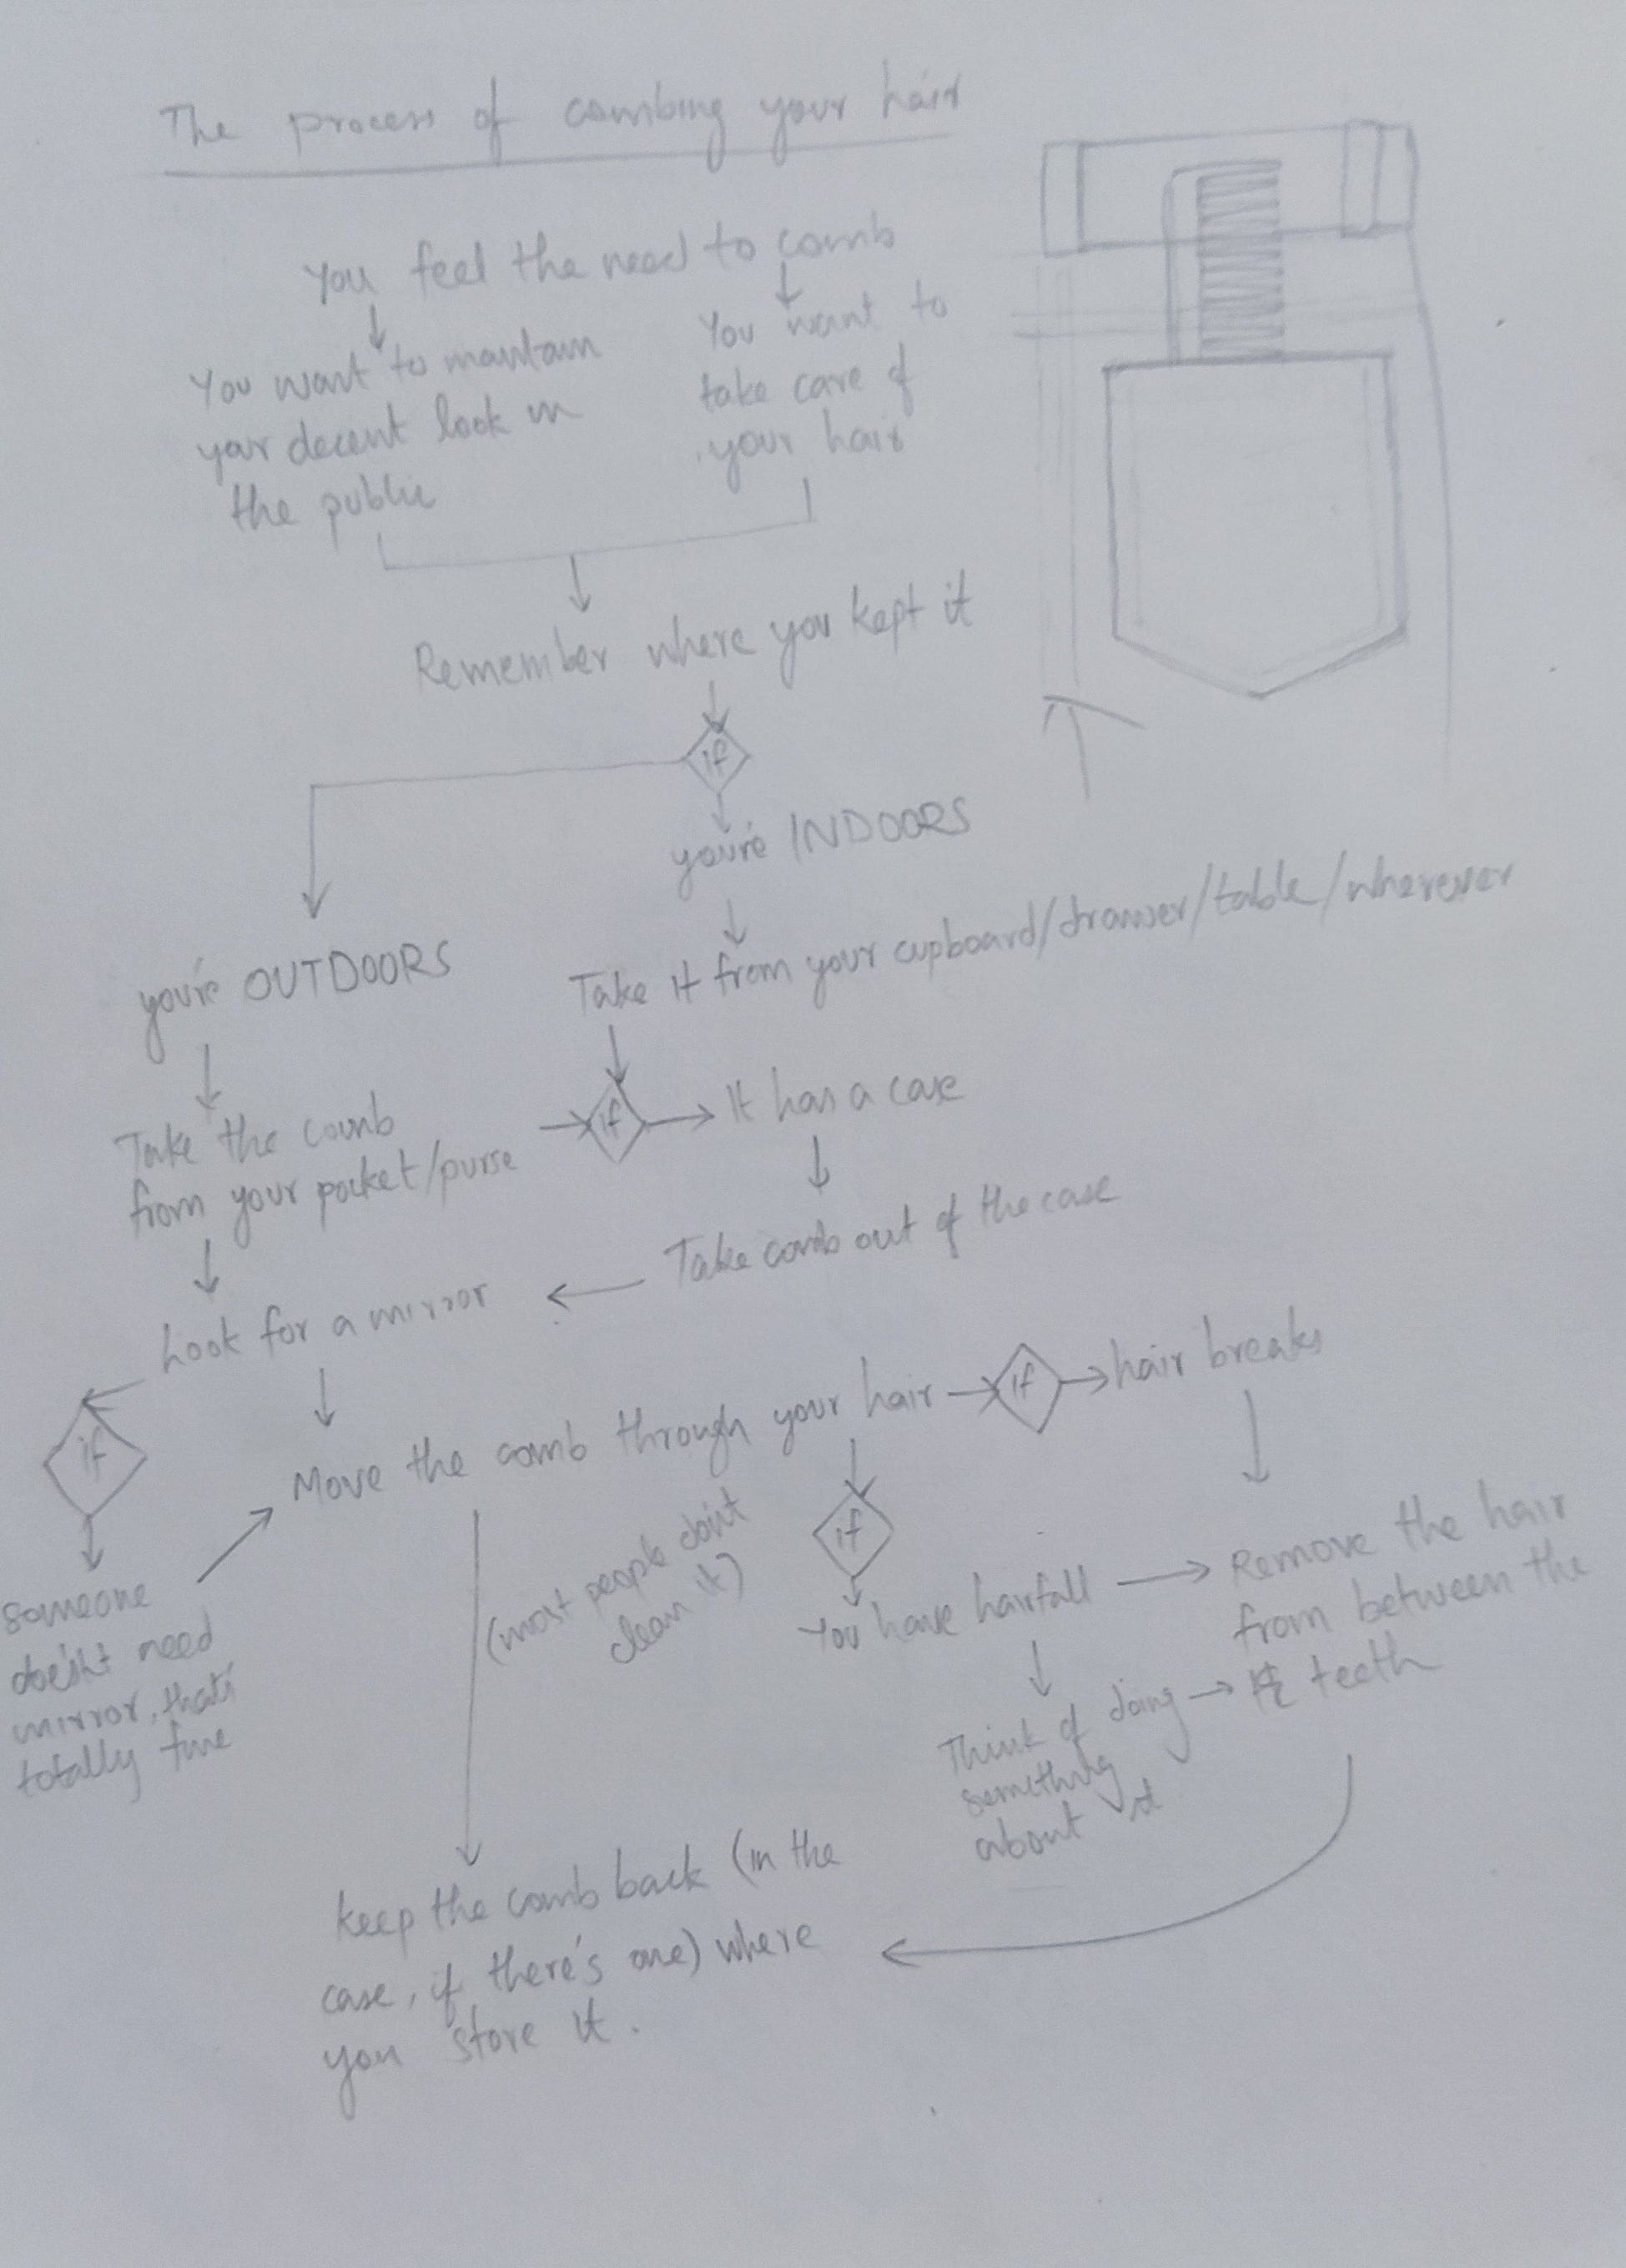 The process of combing your hair
You feel the need to comb
You want to maintain
your decent look in
the public
You want to
take care of
your hair
Remember where you kept it
if
you're INDOORS
you're OUTDOORS
Take it from your cupboard/drawer/table/wherever
Take the comb
from your pocket/purse
if
It has a case
Take comb out of the case
Look for a mirror
if
someone
doesn't need
mirror, that's
totally fine
Move the comb through your hair
if
hair breaks
(most people don't
clean it)
if
You have hairfall
Remove the hair
from between the
teeth
Think of doing
something
about it
keep the comb back (in the
case, if there's one) where
you store it.